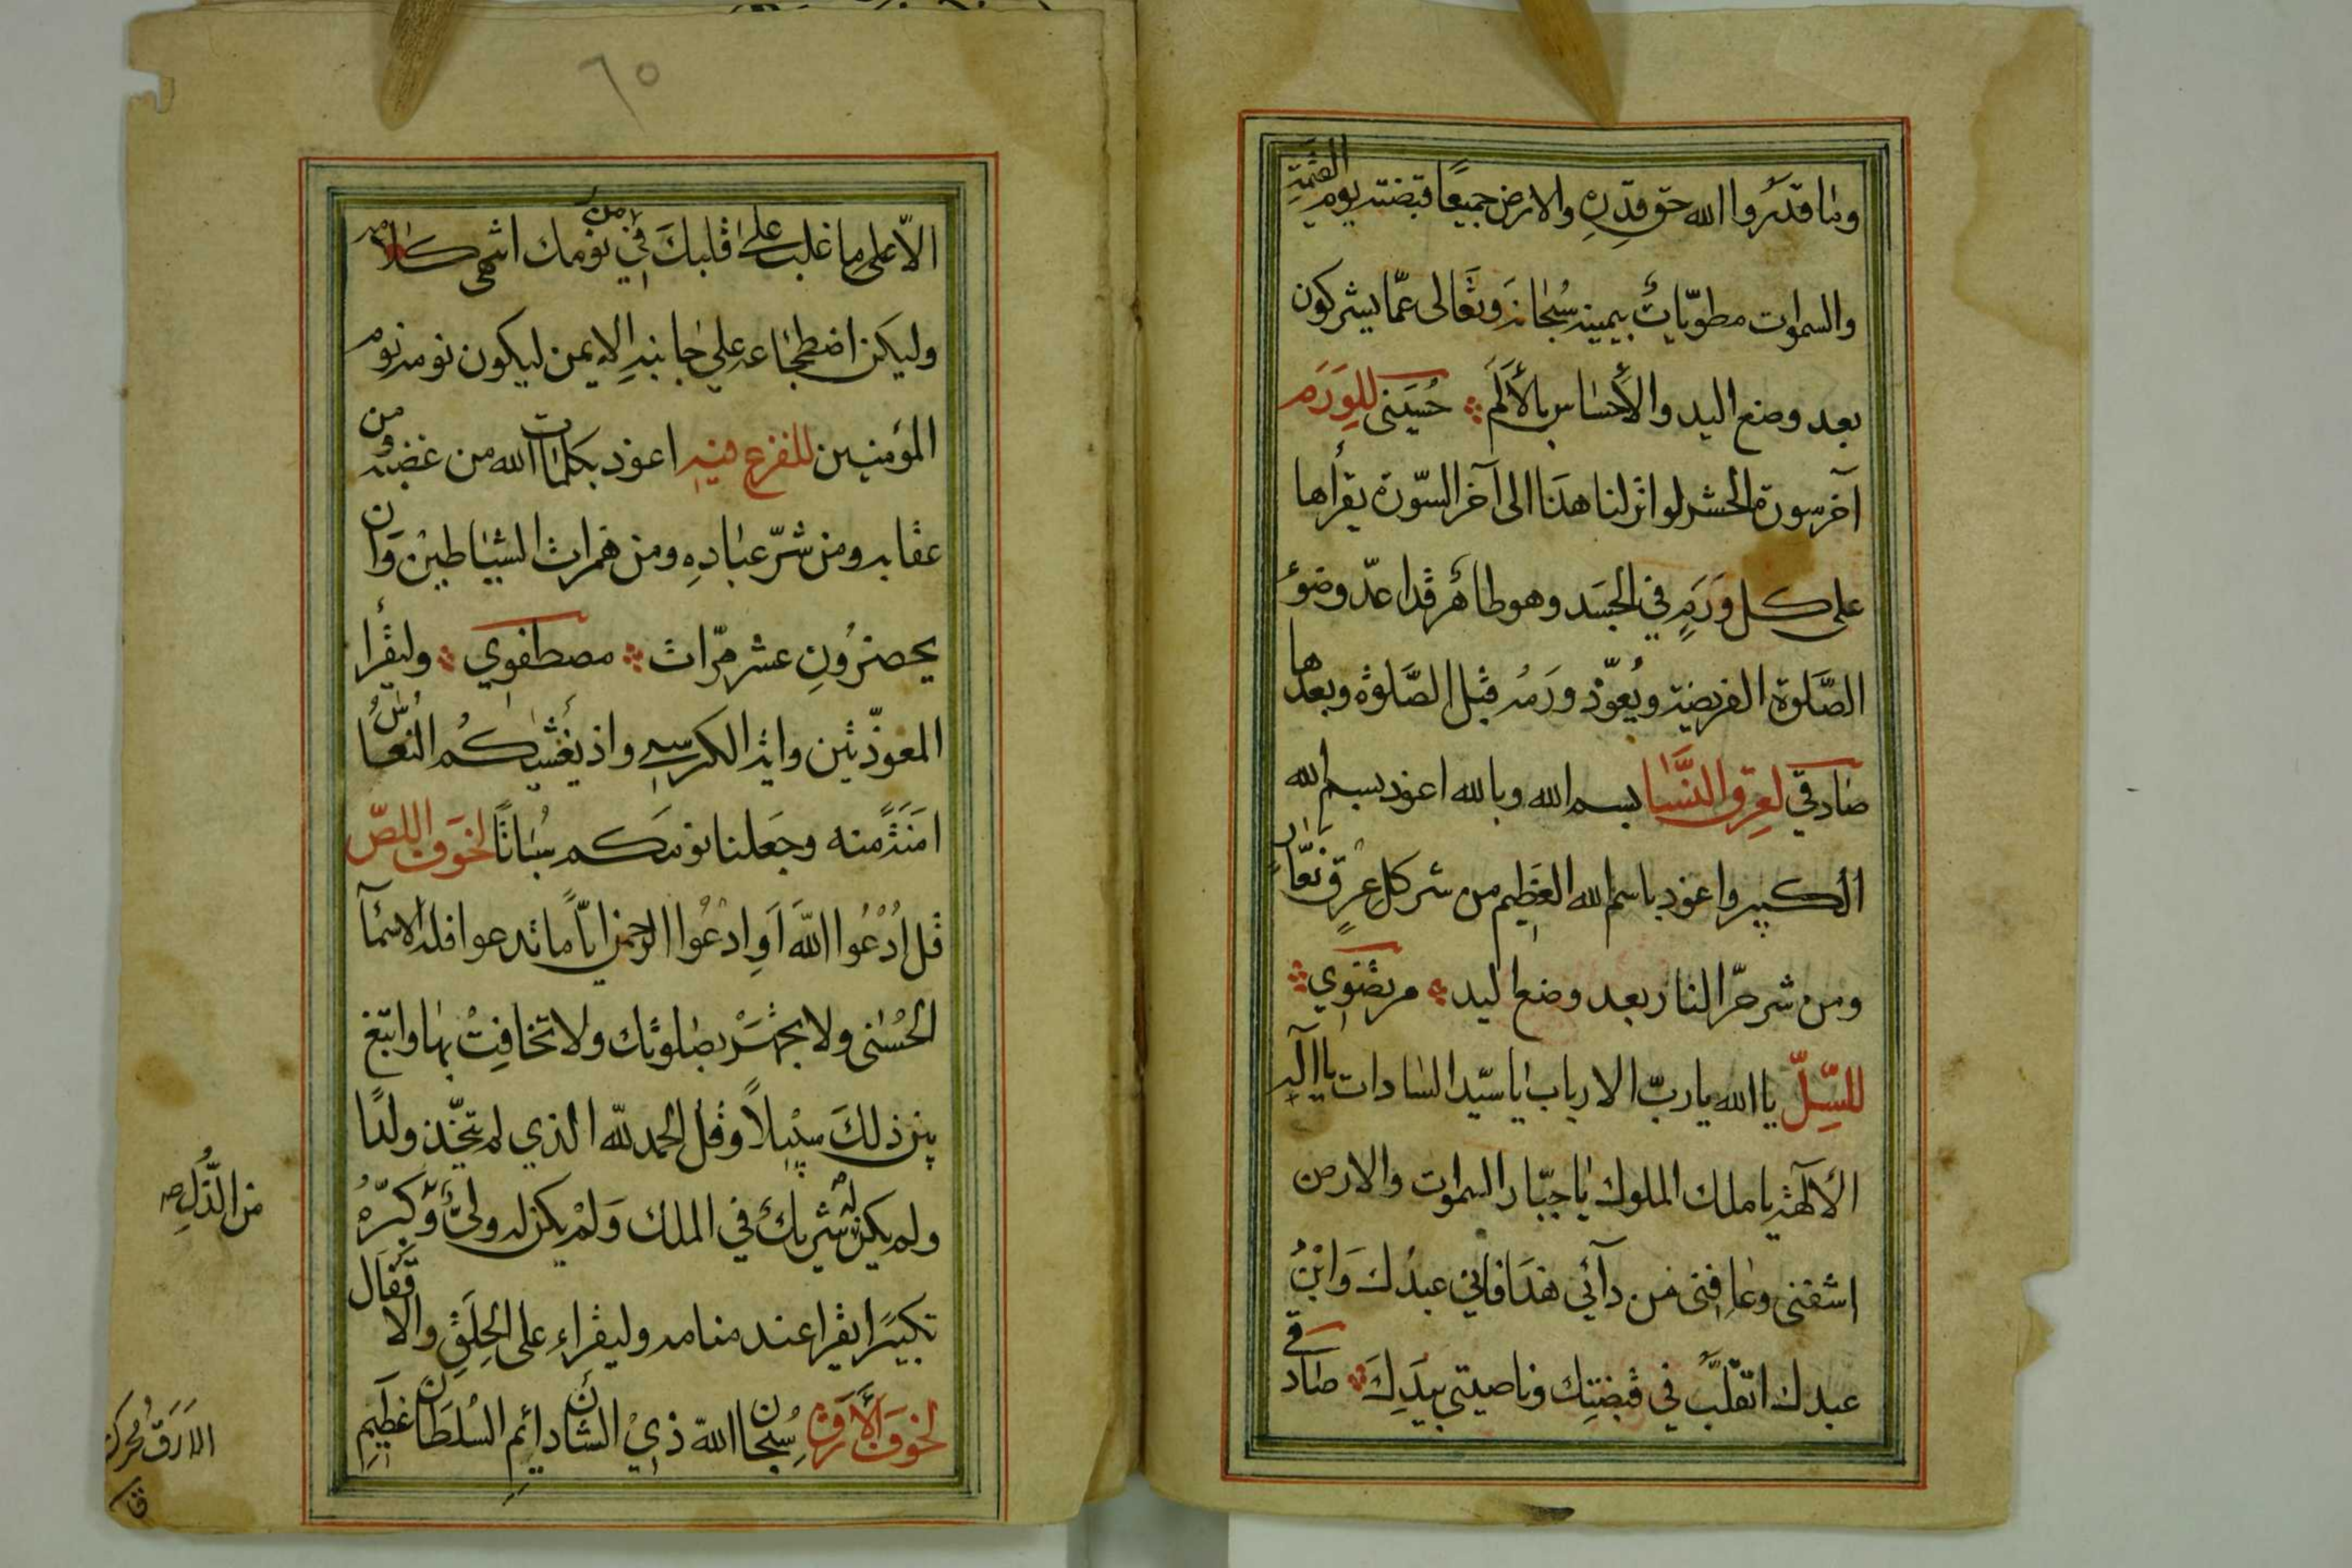 وما قدروا الله حق قدره والارض جميعا قبضته يوم القيمة
والسموات مطويات بيمينه سبحانه وتعالى عما يشركون
بعد وضع اليد والاحساس بالالم حسيني للورم
آخر سورة الحشر لو انزلنا هذا الى آخر السورة يقرأها
على كل ورم في الجسد وهو طاهر قد اعد وضوء
الصلوة الفريضة ويعوذ ورمه قبل الصلوة وبعدها
صادقي لعرق النسا بسم الله وبالله اعوذ بسم الله
الكبير واعوذ باسم الله العظيم من شر كل عرق نعار
ومن شر حر النار بعد وضع اليد مرتضوي
للسل يا الله يا رب الارباب يا سيد السادات يا اله
الالهة يا ملك الملوك يا جبار السموات والارض
اشفني وعافني من دآئي هذا فاني عبدك وابن
عبدك اتقلب في قبضتك وناصيتي بيدك صادقي
٦٥
الا على ما غلب على قلبك في نومك من انتهى كلامه
وليكن اضطجاعه على جانبه الايمن ليكون نومه نوم
المؤمنين للفزع فيه اعوذ بكلمات الله من غضبه ومن
عقابه ومن شر عباده ومن همزات الشياطين وان
يحضرون عشر مرات مصطفوي وليقرأ
المعوذتين واية الكرسي واذ يغشيكم النعاس
امنة منه وجعلنا نومكم سباتا لخوف اللص
قل ادعوا الله او ادعوا الرحمن ايا ما تدعوا فله الاسمآ
الحسنى ولا تجهر بصلوتك ولا تخافت بها وابتغ
بين ذلك سبيلا وقل الحمد لله الذي لم يتخذ ولدا
ولم يكن له شريك في الملك ولم يكن له ولي وكبره
من الذل صح
تكبيرا يقرا عند منامه وليقراء على الحلق والاقفال
لخوف الارق سبحان الله ذي الشان دائم السلطان عظيم
الارق محركة
ق